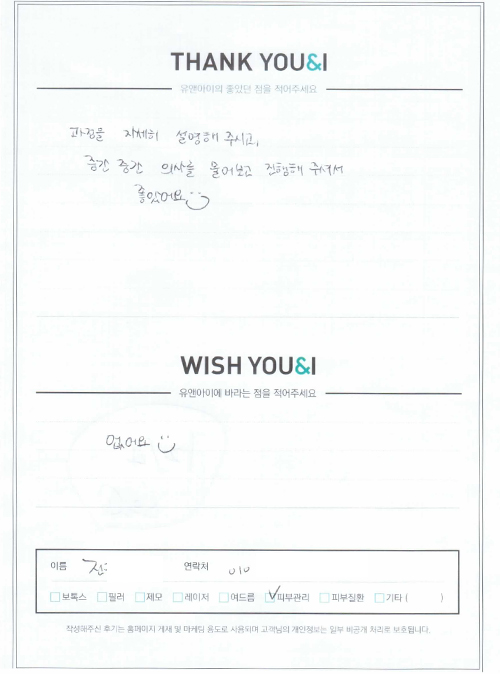 THANK YOU&I
유앤아이의 좋았던 점을 적어주세요
과정을 자세히 설명해 주시고,
중간 중간 의사를 물어보고 진행해 주셔서
좋았어요
WISH YOU&I
유앤아이에 바라는 점을 적어주세요
없어요
이름 전 연락처 010
보톡스 필러 제모 레이저 여드름 피부관리 피부질환 기타 ( )
작성해주신 후기는 홈페이지 게재 및 마케팅 용도로 사용되며 고객님의 개인정보는 일부 비공개 처리로 보호됩니다.